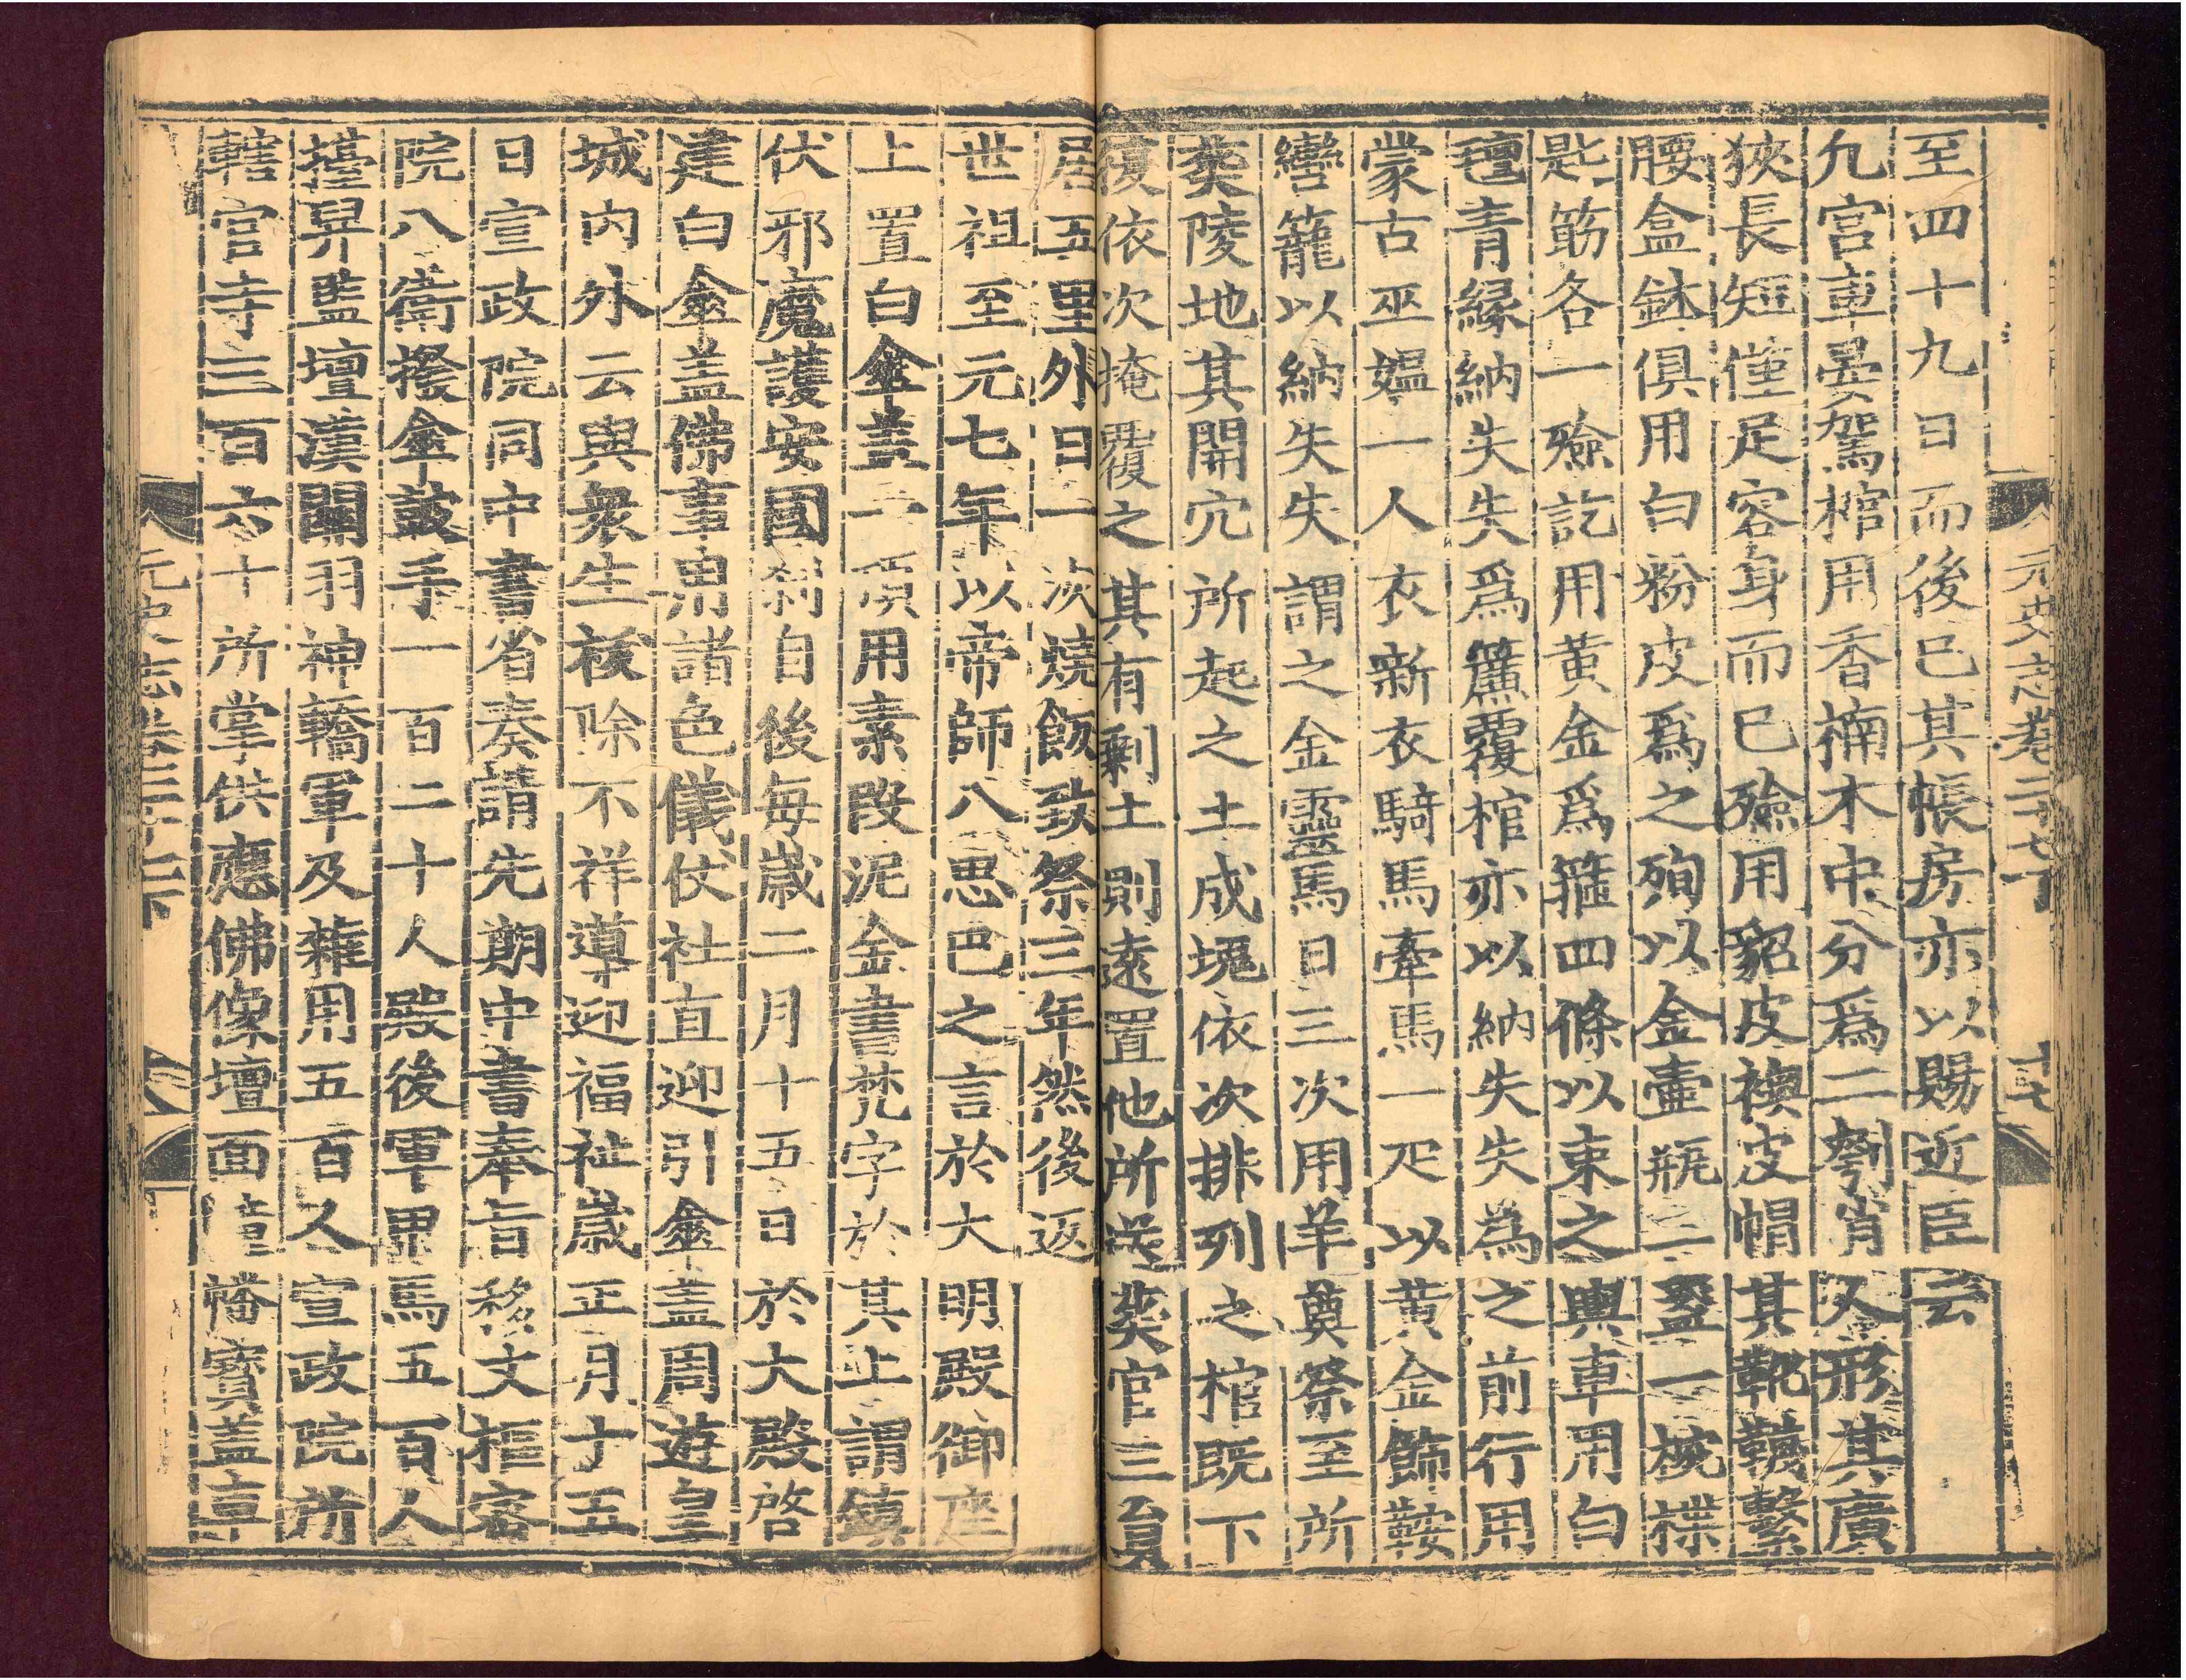 元史志卷二十七下
十七
至四十九日而後已其帳房亦以賜近臣云
凡宫車晏駕棺用香楠木中分爲二刳肖人形其廣
狹長短僅足容身而已殮用貂皮襖皮帽其靴韈繫
腰盒鉢俱用白粉皮爲之殉以金壷瓶二盞一椀楪
匙筯各一殮訖用黄金爲箍四條以束之輿車用白
氊青縁納失失爲簾覆棺亦以納失失為之前行用
蒙古巫媼一人衣新衣騎馬牽馬一疋以黄金飾鞍
轡籠以納失失謂之金靈馬日三次用羊奠祭至所
葬陵地其開穴所起之土成塊依次排列之棺既下
復依次掩覆之其有剩土則逺置他所送葬官三員
居五里外日一次燒飯致祭三年然後返
世祖至元七年以帝師八思巴之言於大明殿御座
上置白傘盖一頂用素段泥金書梵字於其上謂鎮
伏邪魔護安國刹自後毎歳二月十五日於大殿啓
建白傘盖佛事用諸色儀仗社直迎引傘盖周遊皇
城内外云與衆生祓除不祥導迎福祉歳正月十五
日宣政院同中書省奏請先期中書奉旨移文樞密
院八衛撥傘鼓手一百二十人殿後軍甲馬五百人
擡舁監壇漢關羽神轎軍及雜用五百人宣政院所
轄官寺三百六十所掌供應佛像壇面幢幡寳盖車
元史志卷二十七下